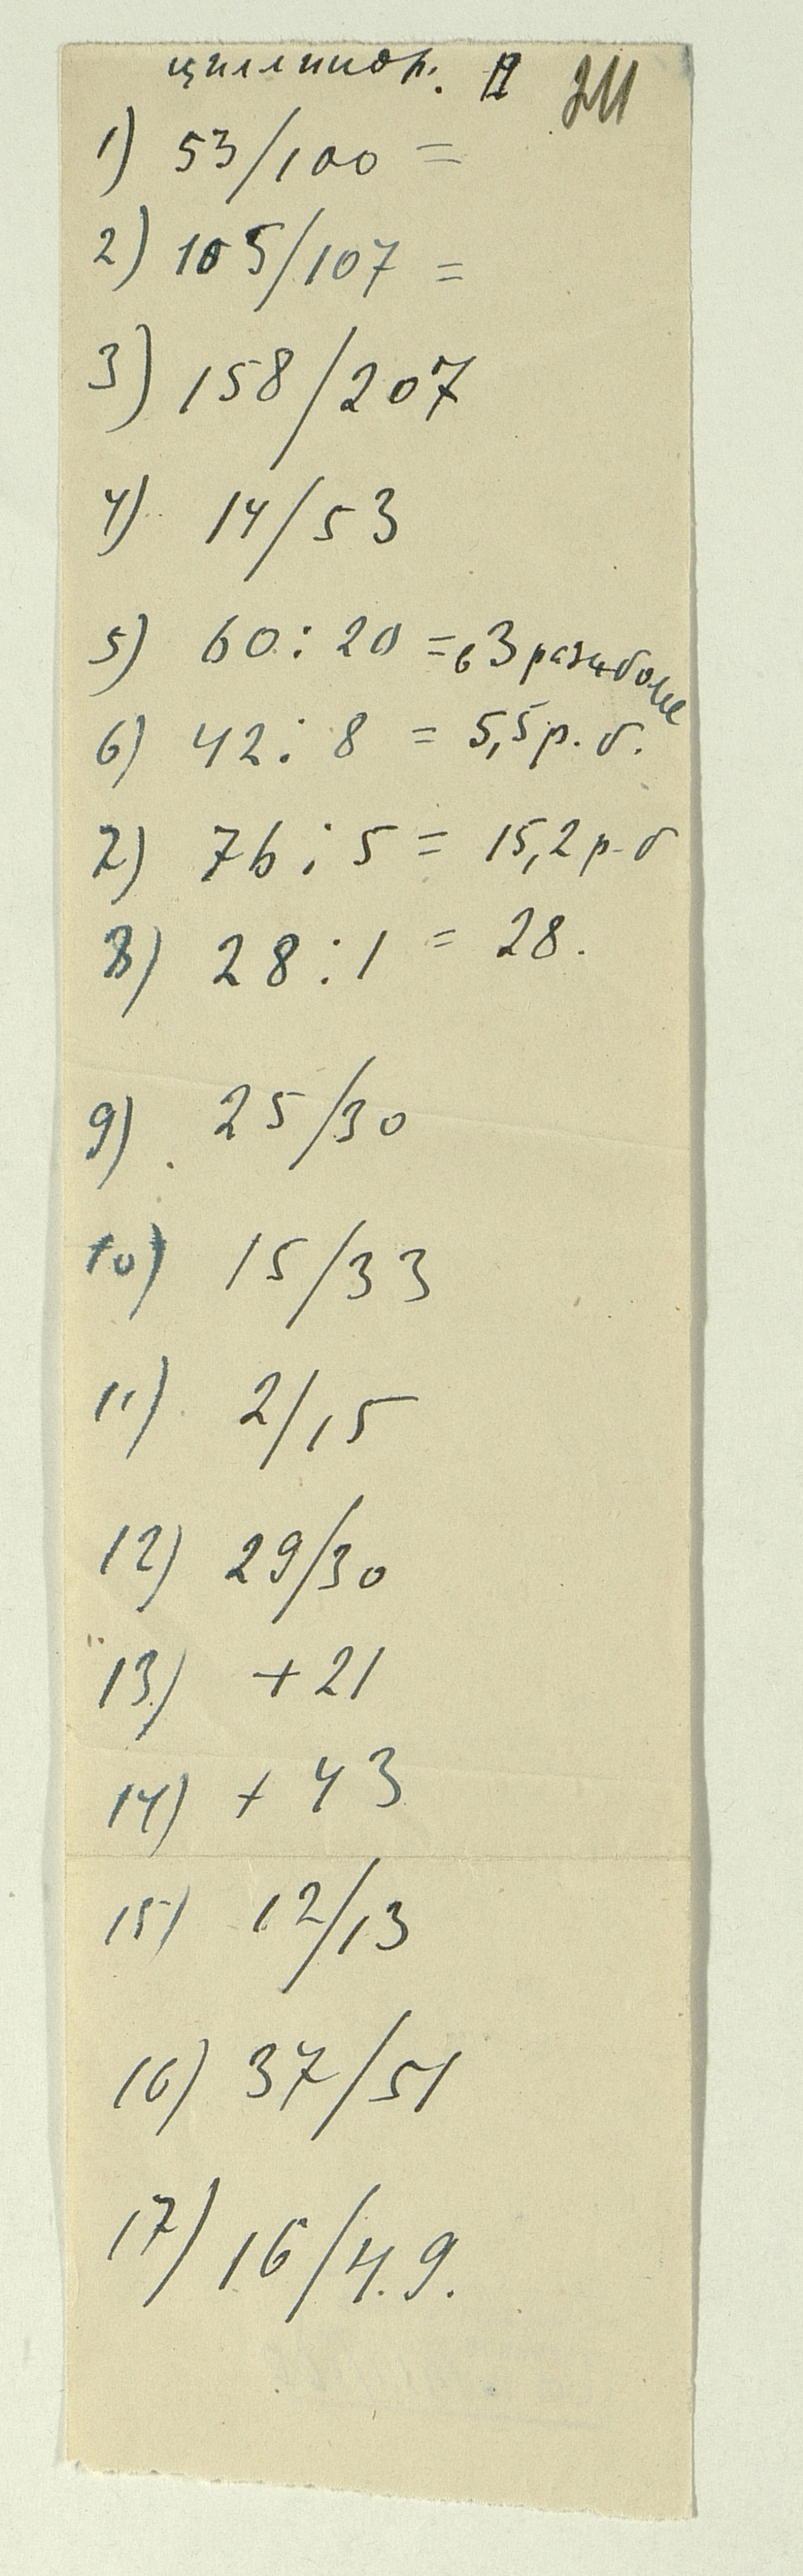 цилиндр. II 211
1) 53/100 =
2) 105/107 =
3) 158/207
4) 14/53
5) 60 : 20 = в 3 раза более
6) 42 : 8 = 5,5 р. б.
7) 76 : 5 = 15,2 р. б
8) 28 : 1 = 28.
9) 25/30
10) 15/33
11) 2/15
12) 29/30
13) + 21
14) + 43
15) 12/13
16) 37/51
17) 16/4.9.